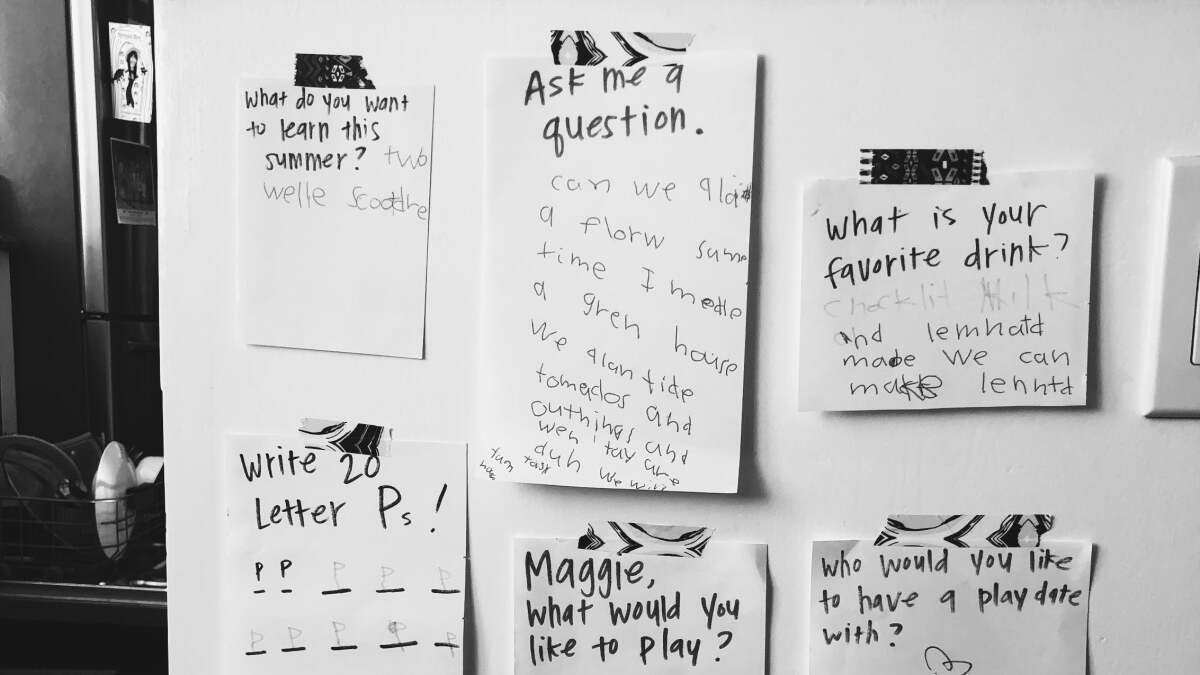 What do you want
to learn this
summer? two
welle scootdre
Ask me a
question.
can we
a florw sume
time I made
a gren house
We plan tide
tomados and
outhings and
wen tay are
duh we will
tast
What is your
favorite drink?
chocklit Milk
and lemnatd
made we can
lenntd
Write 20
Letter Ps!
P P P P P
P P P P P
Maggie,
what would you
like to play?
who would you like
to have a playdate
with?